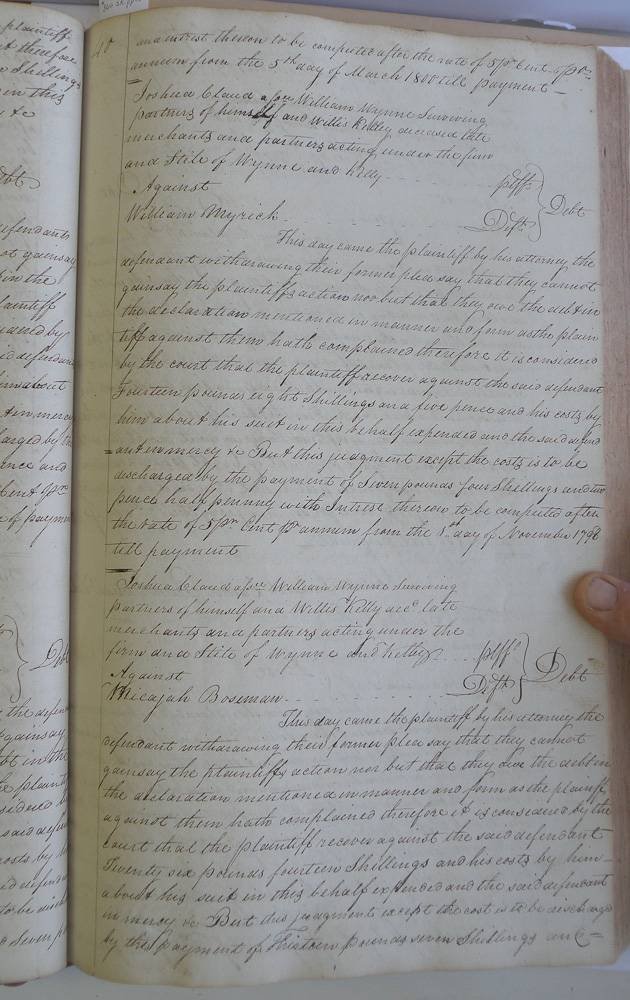 40
and intrest thereon to be computed after the rate of 5 pr Cent pr
annum from the 5th day of March 1800 till payment
Joshua Claud assee William Wynne Surviving
partners of himself and Willis Kelley deceased late
merchants and partners acting under the firm
and Stile of Wynne and Kelly plff
Against Debt
William Myrick Deft
This day came the plaintiff by his attorney the
defendant withdrawing their former plea say that they cannot
gainsay the plaintiffs action nor but that they owe the debt in
the declaration mentioned in manner and form as the plain
tiff against them hath complained therefore it is considered
by the court that the plaintiff recover against the said defendant
Fourteen pounds eight Shillings and five pence and his costs by
him about his suit in this behalf expended and the said defend
ant in mercy &c But this judgment except the costs is to be
discharged by the payment of Seven pounds four Shillings and two
pence half penny with Intrest thereon to be computed after
the rate of 5 pr Cent pr annum from the 1st day of November 1798
till payment
Joshua Claud assee William Wynne Surviving
partners of himself and Willis Kelly decd late
merchants and partners acting under the
firm and Stile of Wynne and Kelley plff
Against Debt
Micajah Boseman Deft
This day came the plaintiff by his attorney the
defendant withdrawing their former plea say that they cannot
gainsay the plaintiffs action nor but that they owe the debt in
the declaration mentioned in manner and form as the plaintiff
against them hath complained therefore it is considered by the
court that the plaintiff recover against the said defendant
Twenty six pounds fourteen Shillings and his costs by him
about his suit in this behalf expended and the said defendant
in mercy &c But this judgment except the cost is to be discharged
by the payment of Thirteen pounds seven Shillings and